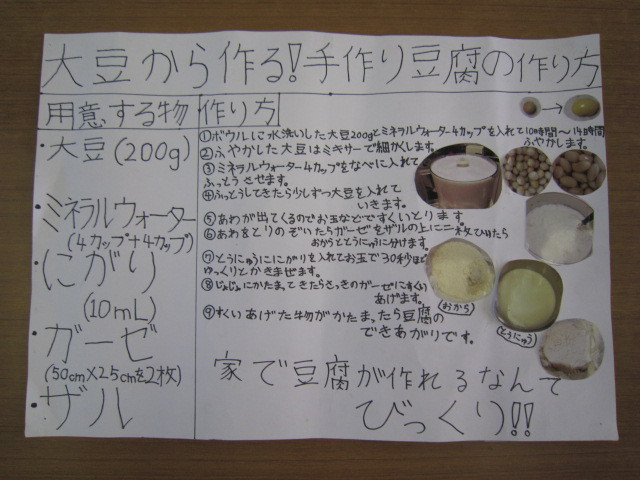 大豆から作る!手作り豆腐の作り方
用意する物
・大豆(200g)
・ミネラルウォーター
(4カップ+4カップ)
・にがり
(10mL)
・ガーゼ
(50cm×25cmを2枚)
・ザル
作り方
①ボウルに水洗いした大豆200gとミネラルウォーター4カップを入れて10時間〜14時間
ふやかします。
②ふやかした大豆はミキサーで細かくします。
③ミネラルウォーター4カップをなべに入れて
ふっとうさせます。
④ふっとうしてきたら少しずつ大豆を入れて
いきます。
⑤あわが出てくるのでお玉などですくいとります
⑥あわをとりのぞいたらガーゼをザルの上に二枚ひいたら
おからととうにゅうに分けます。
⑦とうにゅうににがりを入れてお玉で30秒ほど
ゆっくりとかきまぜます。
⑧じょじょにかたまってきたらさっきのガーゼにすくい
あげます。
⑨すくいあげた物がかたまったら豆腐の
できあがりです。
(おから)
(とうにゅう)
家で豆腐が作れるなんて
びっくり!!